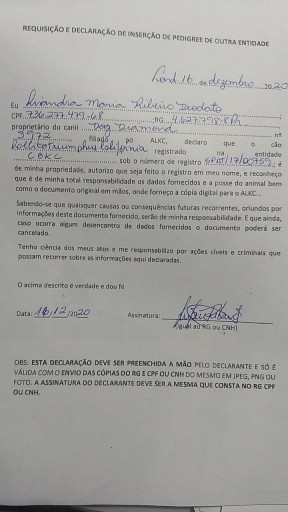 REQUISIÇÃO E DECLARAÇÃO DE INSERÇÃO DE PEDIGREE DE OUTRA ENTIDADE
16 de dezembro 2020
Eu Livandra Maria Ribeiro Deodato
CPF 736.277.479-68 RG
proprietário do canil Dog Diamond nº
3972 filiado ALKC, declaro que o cão
California registrado na entidade
CBKC sob o número de registro é
de minha propriedade, autorizo que seja feito o registro em meu nome, e reconheço
que é de minha total responsabilidade os dados fornecidos e a posse do animal bem
como o documento original em mãos, onde forneço a cópia digital para o ALKC.
Sabendo-se que quaisquer causas ou consequências futuras recorrentes, oriundos por
informações deste documento fornecido, serão de minha responsabilidade. E que ainda,
caso ocorra algum desencontro de dados fornecidos o documento poderá ser
cancelado.
Tenho ciência dos meus atos e me responsabilizo por ações cíveis e criminais que
possam recorrer sobre as informações aqui declaradas.
O acima descrito é verdade e dou fé
Data: 16/12/2020 Assinatura:
(igual ao RG ou CNH)
OBS: ESTA DECLARAÇÃO DEVE SER PREENCHIDA A MÃO PELO DECLARANTE E SÓ É
VÁLIDA COM O ENVIO DAS CÓPIAS DO RG E CPF OU CNH DO MESMO EM JPEG, PNG OU
FOTO. A ASSINATURA DO DECLARANTE DEVE SER A MESMA QUE CONSTA NO RG CPF
OU CNH.